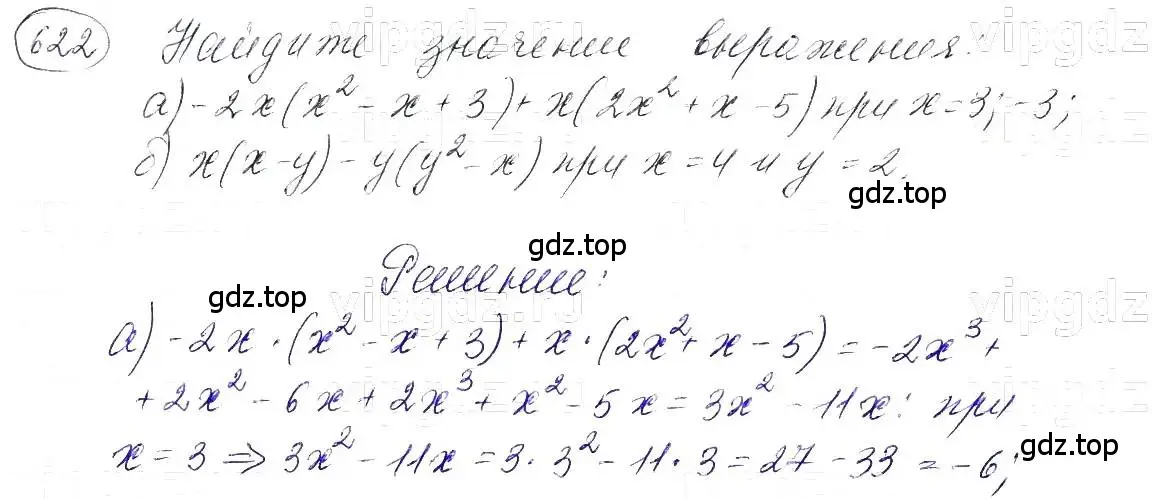 622 Найдите значение выражения:
а) -2x(x² - x + 3) + x(2x² + x - 5) при x = 3; -3;
б) x(x - y) - y(y² - x) при x = 4 и y = 2.
gdz.top
gdz.top
Решение:
gdz.top
а) -2x · (x² - x + 3) + x · (2x² + x - 5) = -2x³ +
+ 2x² - 6x + 2x³ + x² - 5x = 3x² - 11x: при
x = 3 ⇒ 3x² - 11x = 3 · 3² - 11 · 3 = 27 - 33 = -6;
gdz.top
vipgdz
vipgdz.ru
vipgdz